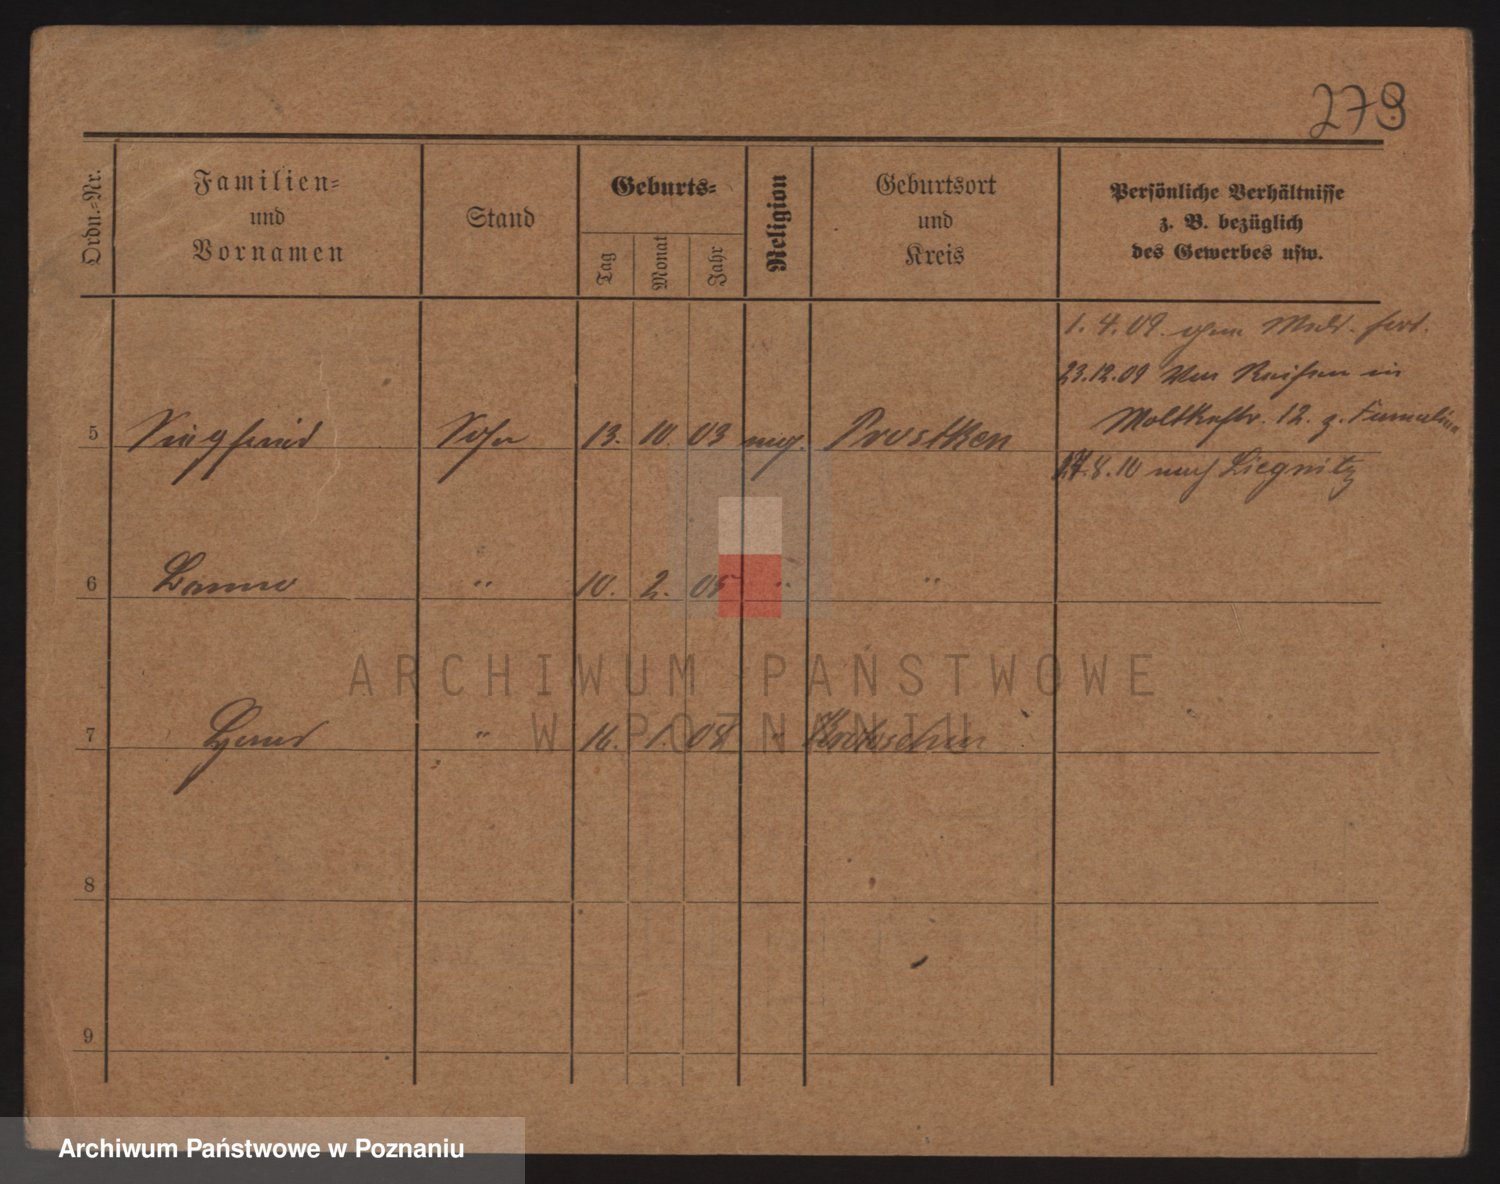 279
Ordn.-Nr.
Familien-
und
Vornamen
Stand
Geburts-
Tag
Monat
Jahr
Religion
Geburtsort
und
Kreis
Persönliche Verhältnisse
z. B. bezüglich
des Gewerbes usw.
1. 4. 09.
23.12.09 Von Reisen in
Moltkestr. 12. z. Familie
5 Siegfried Sohn 13. 10. 03 evg. Prostken
27.8.10 nach Liegnitz
6 " 10. 2. 05 " "
7 " 16. 1. 08 " Krotoschin
8
9
ARCHIWUM PAŃSTWOWE
W POZNANIU
Archiwum Państwowe w Poznaniu